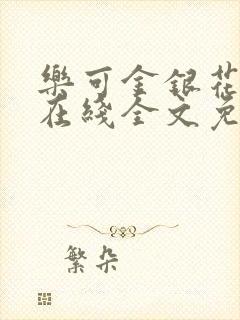 樂可金銀花
在綫全文免
繁朵